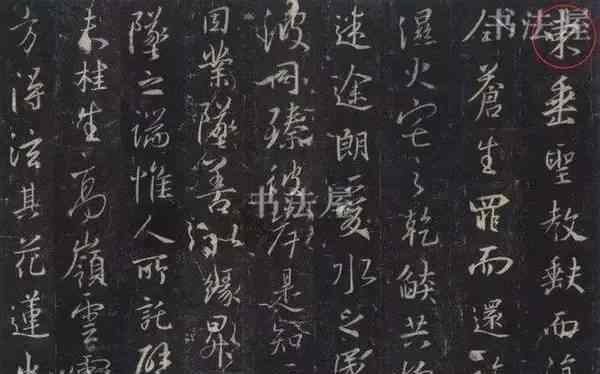 東垂聖教缺而
全蒼生罪而還
濕火宅之乾焰共
迷途朗愛水之昏
波同臻彼岸是知
因業墜善以緣昇
墜之端惟人所託譬
夫桂生高嶺雲露
方得泫其花蓮出
书法屋
书法屋